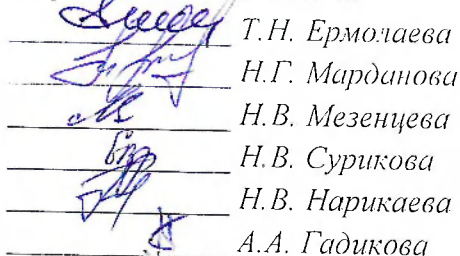 Т.Н. Ермолаева
Н.Г. Марданова
Н.В. Мезенцева
Н.В. Сурикова
Н.В. Нарикаева
А.А. Гадикова